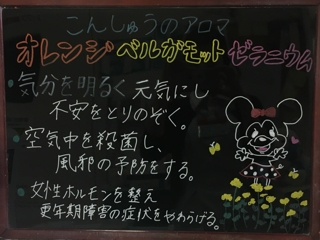 こんしゅうのアロマ
オレンジ ベルガモット ゼラニウム
・気分を明るく 元気にし
不安をとりのぞく。
・空気中を殺菌し、
風邪の予防をする。
・女性ホルモンを整え
更年期障害の症状をやわらげる。